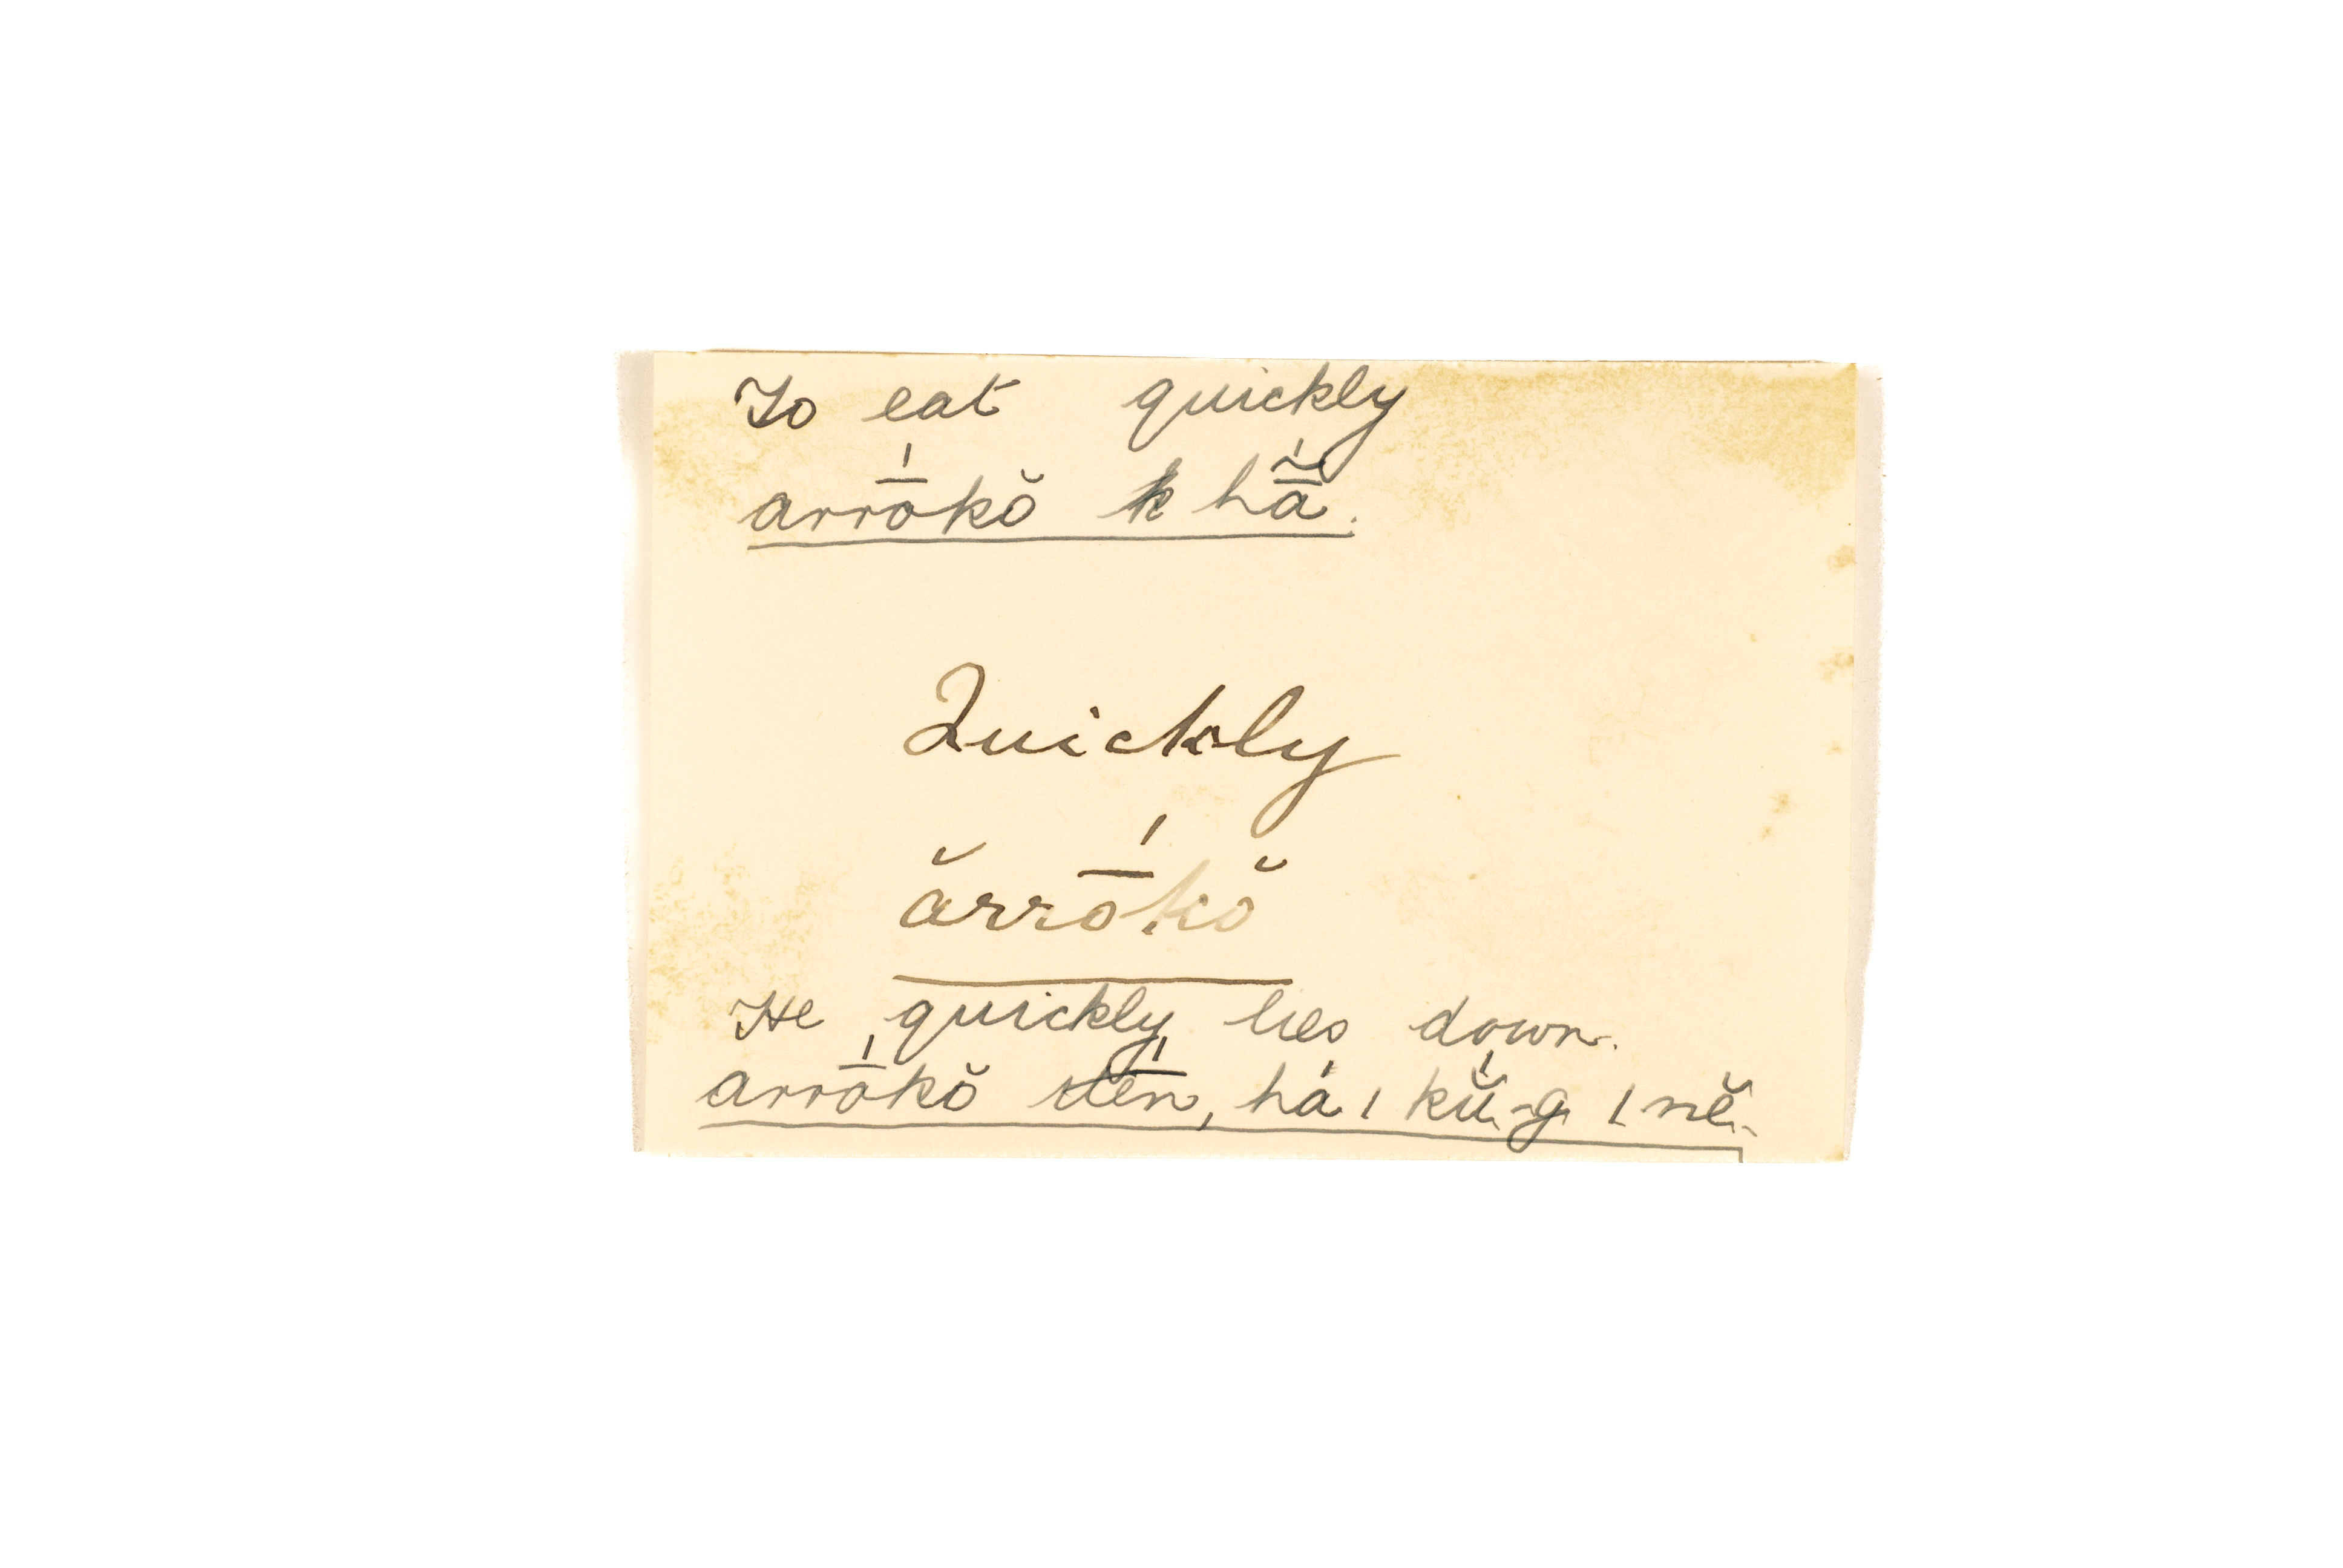 To eat quickly
arrṓkŏ k hā̃́.
Quickly
ărrṓkŏ
He quickly lies down.
arrṓkŏ dḗn, há ı kŭ́-g ı nĕ.